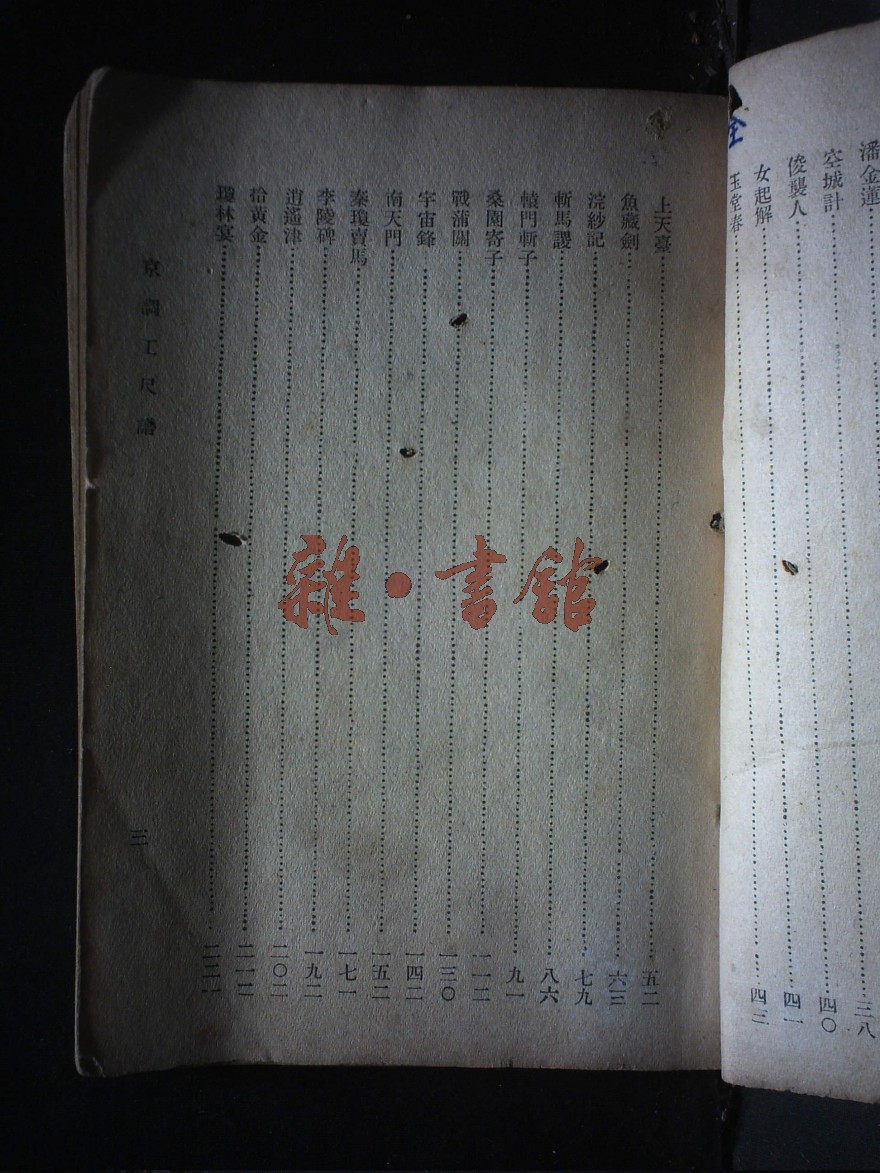 全
潘金蓮……三八
空城計……四〇
俊襲人……四一
女起解……四三
玉堂春……
上天臺……五二
魚藏劍……六三
浣紗記……七九
斬馬謖……八六
轅門斬子……九一
桑園寄子……一一二
戰蒲關……一三〇
宇宙鋒……一四二
南天門……一五二
秦瓊賣馬……一七一
李陵碑……一九二
逍遙津……二〇二
拾黃金……二一二
瓊林宴……二二一
京調工尺譜
三
雜·書館